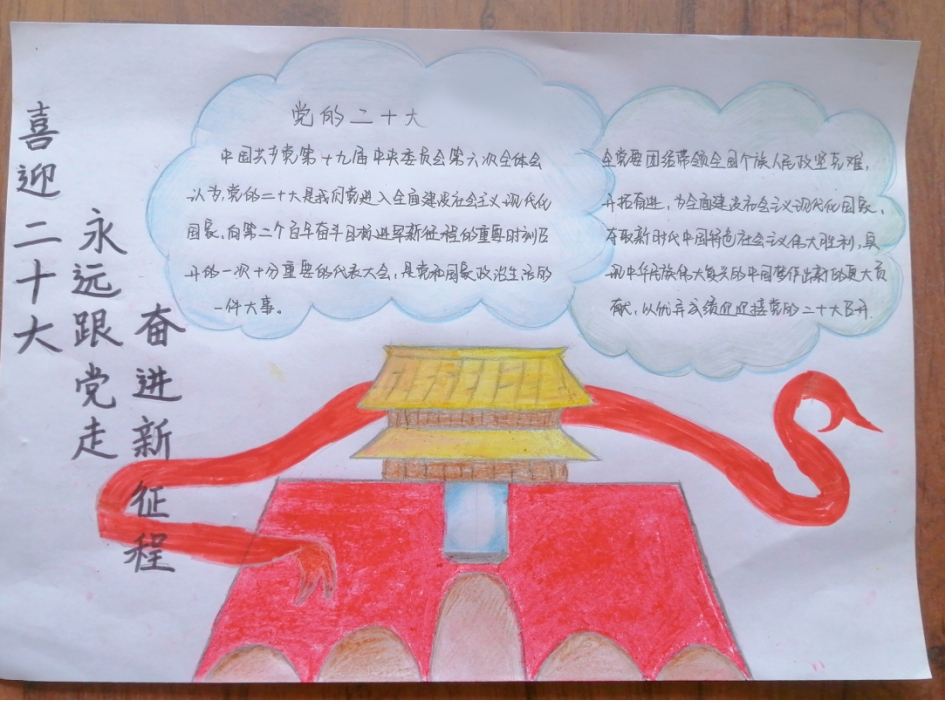 喜迎二十大
永远跟党走
奋进新征程
党的二十大
中国共产党第十九届中央委员会第六次全体会
认为,党的二十大是我们党进入全面建设社会主义现代化
国家,向第二个百年奋斗目标进军新征程的重要时刻召
开的一次十分重要的代表大会,是党和国家政治生活的
一件大事。
全党要团结带领全国个族人民攻坚克难,
开拓奋进,为全面建设社会主义现代化国家、
夺取新时代中国特色社会主义伟大胜利、实
现中华民族伟大复兴的中国梦作出新的更大贡
献,以优异成绩迎接党的二十大召开.